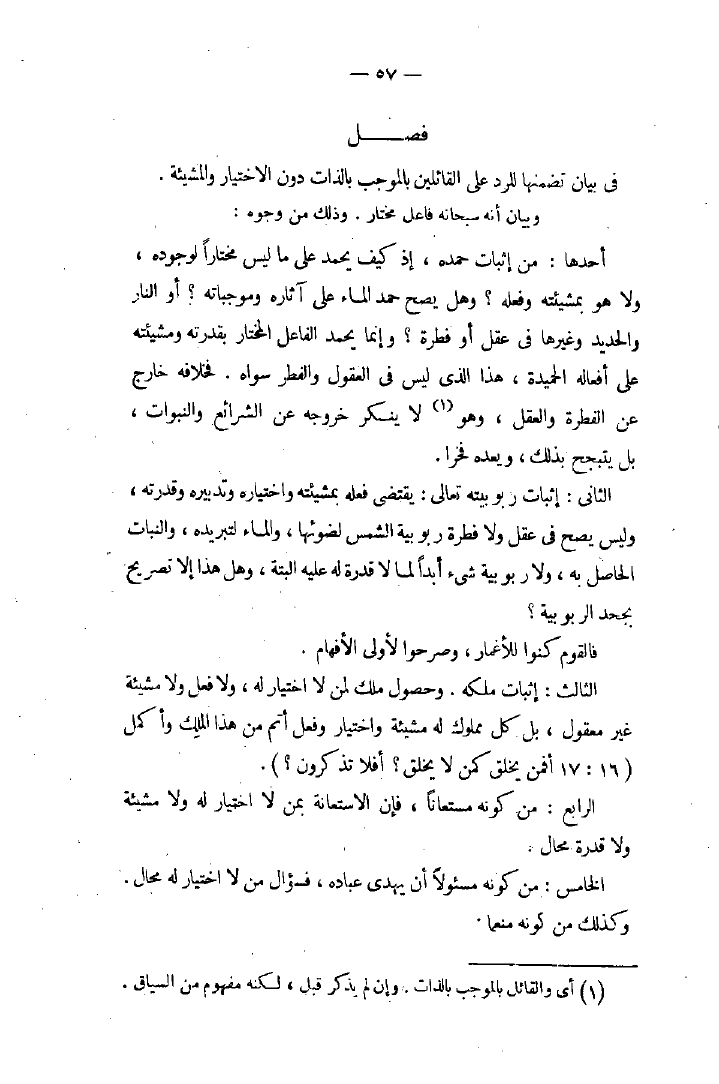 — ٥٧ —
فصـــــل
فى بيان تضمنها للرد على القائلين بالموجب بالذات دون الاختيار والمشيئة .
وبيان أنه سبحانه فاعل مختار . وذلك من وجوه :
أحدها : من إثبات حمده ، إذ كيف يحمد على ما ليس مختاراً لوجوده ،
ولا هو بمشيئته وفعله ؟ وهل يصح حمد المـاء على آثاره وموجباته ؟ أو النار
والحديد وغيرها فى عقل أو فطرة ؟ وإنما يحمد الفاعل المختار بقدرته ومشيئته
على أفعاله الحميدة ، هذا الذى ليس فى العقول والفطر سواه . فخلافه خارج
عن الفطرة والعقل ، وهو (١) لا ينـكر خروجه عن الشرائع والنبوات ،
بل يتبجح بذلك ، ويعده فخرا .
الثانى : إثبات ربوبيته تعالى : يقتضى فعله بمشيئته واختياره وتدبيره وقدرته ،
وليس يصح فى عقل ولا فطرة ربوبية الشمس لضوئها ، والمـاء لتبريده ، والنبات
الحاصل به ، ولا ربوبية شىء أبداً لمـا لا قدرة له عليه البتة ، وهل هذا إلا تصريح
بجحد الربوبية ؟
فالقوم كنوا للأغمار ، وصرحوا لأولى الأفهام .
الثالث : إثبات ملكه . وحصول ملك لمن لا اختيار له ، ولا فعل ولا مشيئة
غير معقول ، بل كل مملوك له مشيئة واختيار وفعل أتم من هذا الملك وأكمل
( ١٦ : ١٧ أفمن يخلق كمن لا يخلق ؟ أفلا تذكرون ؟ ) .
الرابع : من كونه مستعاناً ، فإن الاستعانة بمن لا اختيار له ولا مشيئة
ولا قدرة محال .
الخامس : من كونه مسئولاً أن يهدى عباده ، فسؤال من لا اختيار له محال .
وكذلك من كونه منعما .
(١) أى والقائل بالموجب بالذات . وإن لم يذكر قبل ، لـكنه مفهوم من السياق .